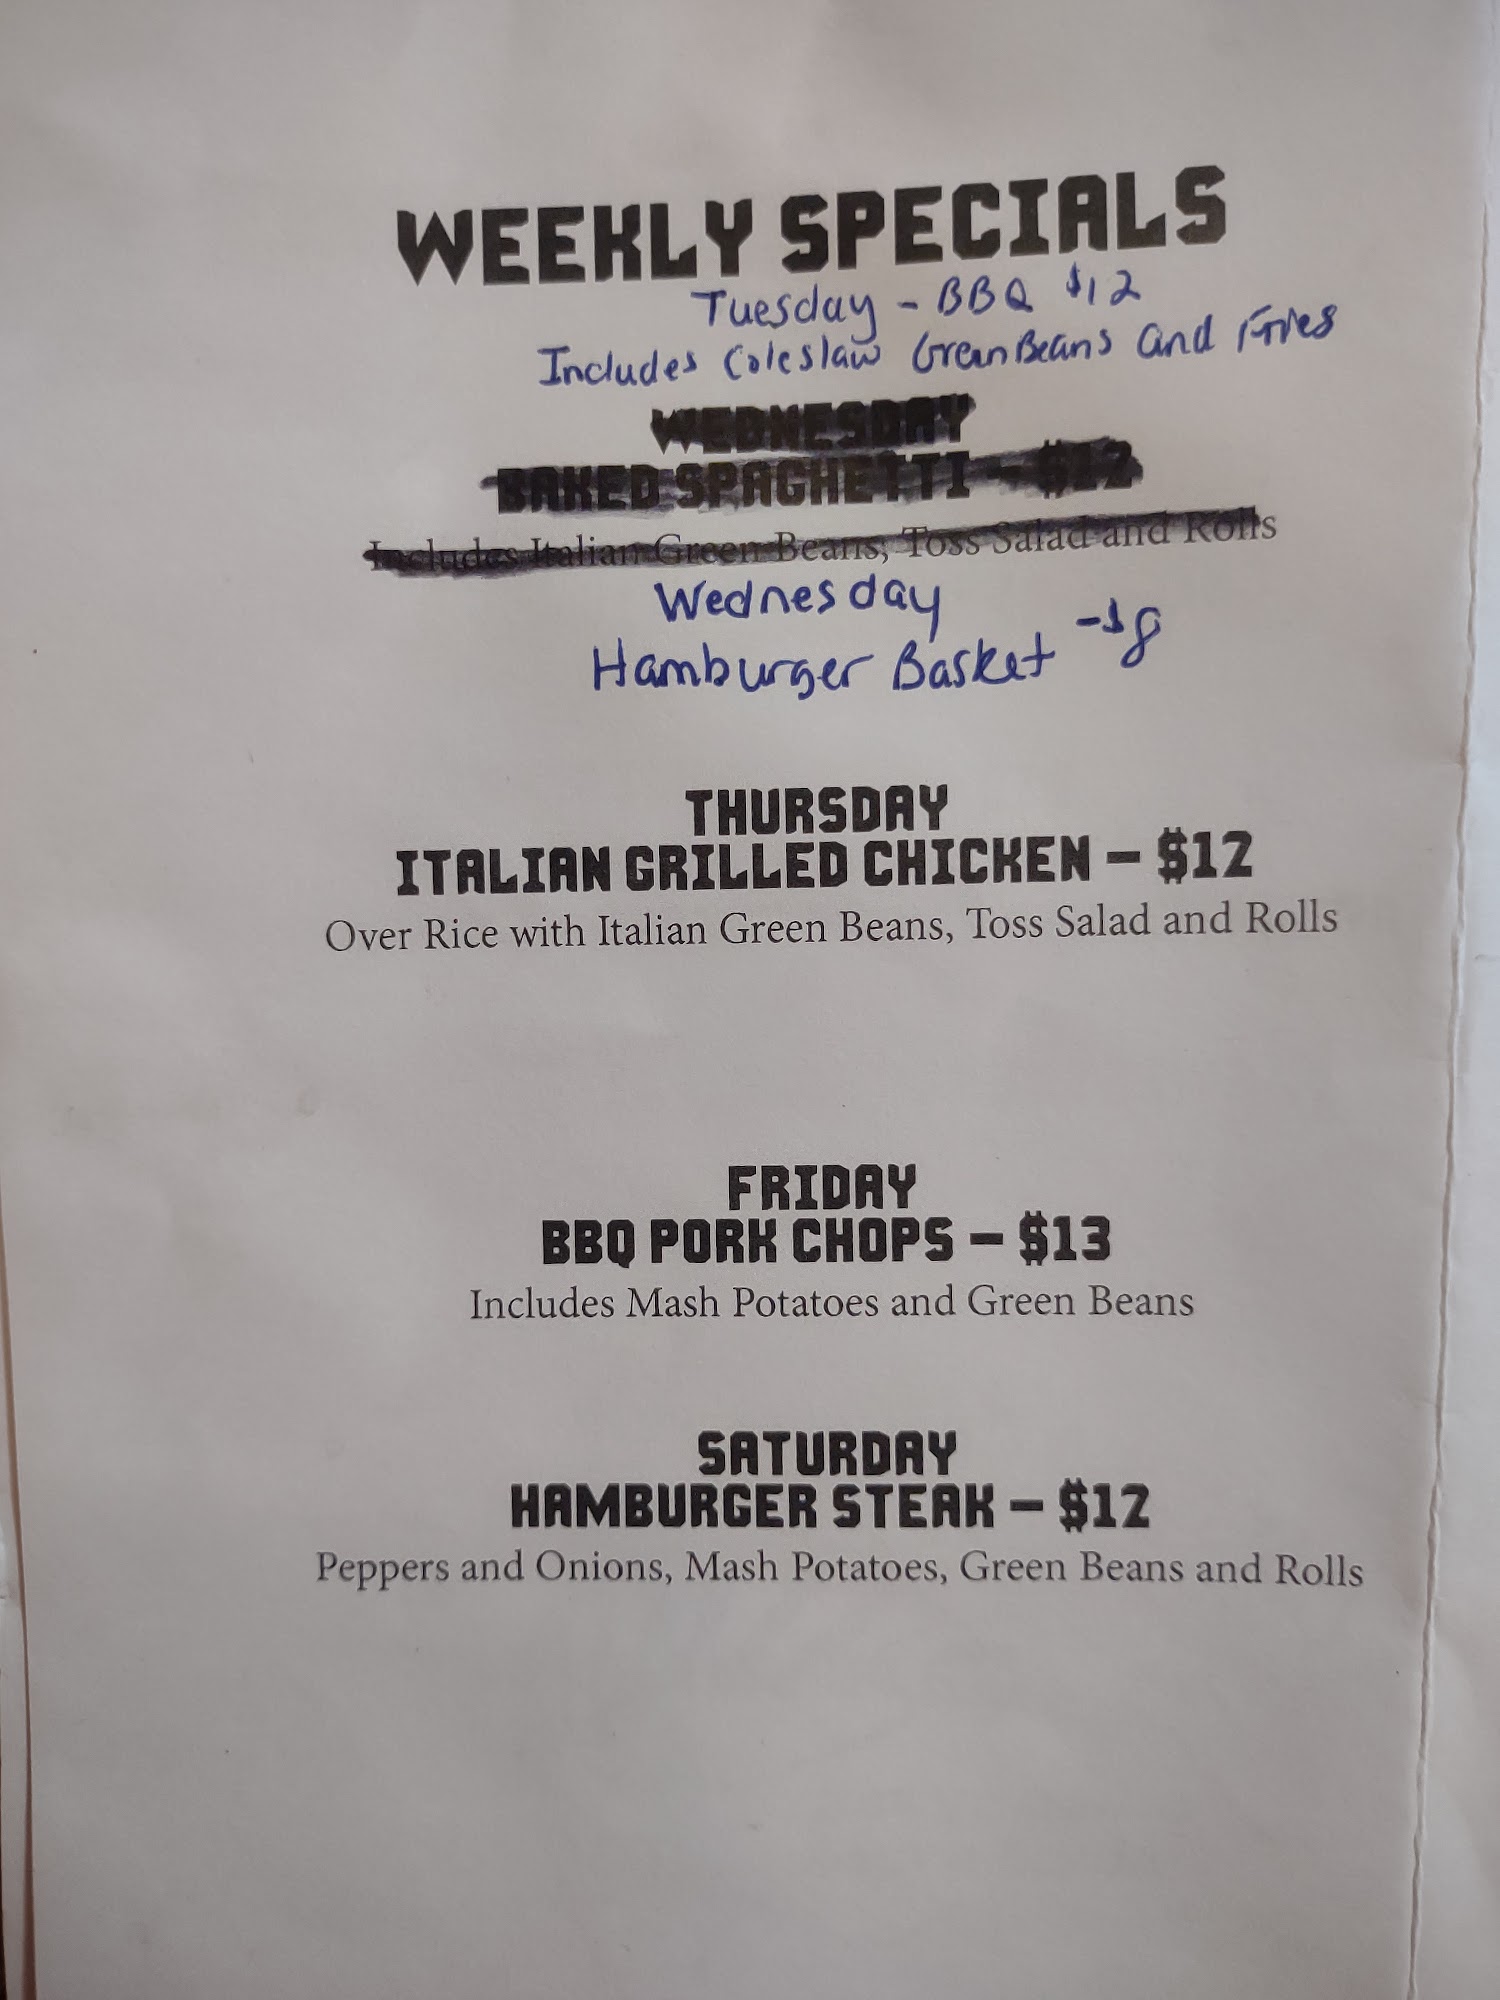 WEEKLY SPECIALS
Tuesday - BBQ $12
Includes Coleslaw Green Beans and Fries
WEDNESDAY
BAKED SPAGHETTI – $12
Includes Italian Green Beans, Toss Salad and Rolls
Wednesday
Hamburger Basket - $8
THURSDAY
ITALIAN GRILLED CHICKEN – $12
Over Rice with Italian Green Beans, Toss Salad and Rolls
FRIDAY
BBQ PORK CHOPS – $13
Includes Mash Potatoes and Green Beans
SATURDAY
HAMBURGER STEAK – $12
Peppers and Onions, Mash Potatoes, Green Beans and Rolls